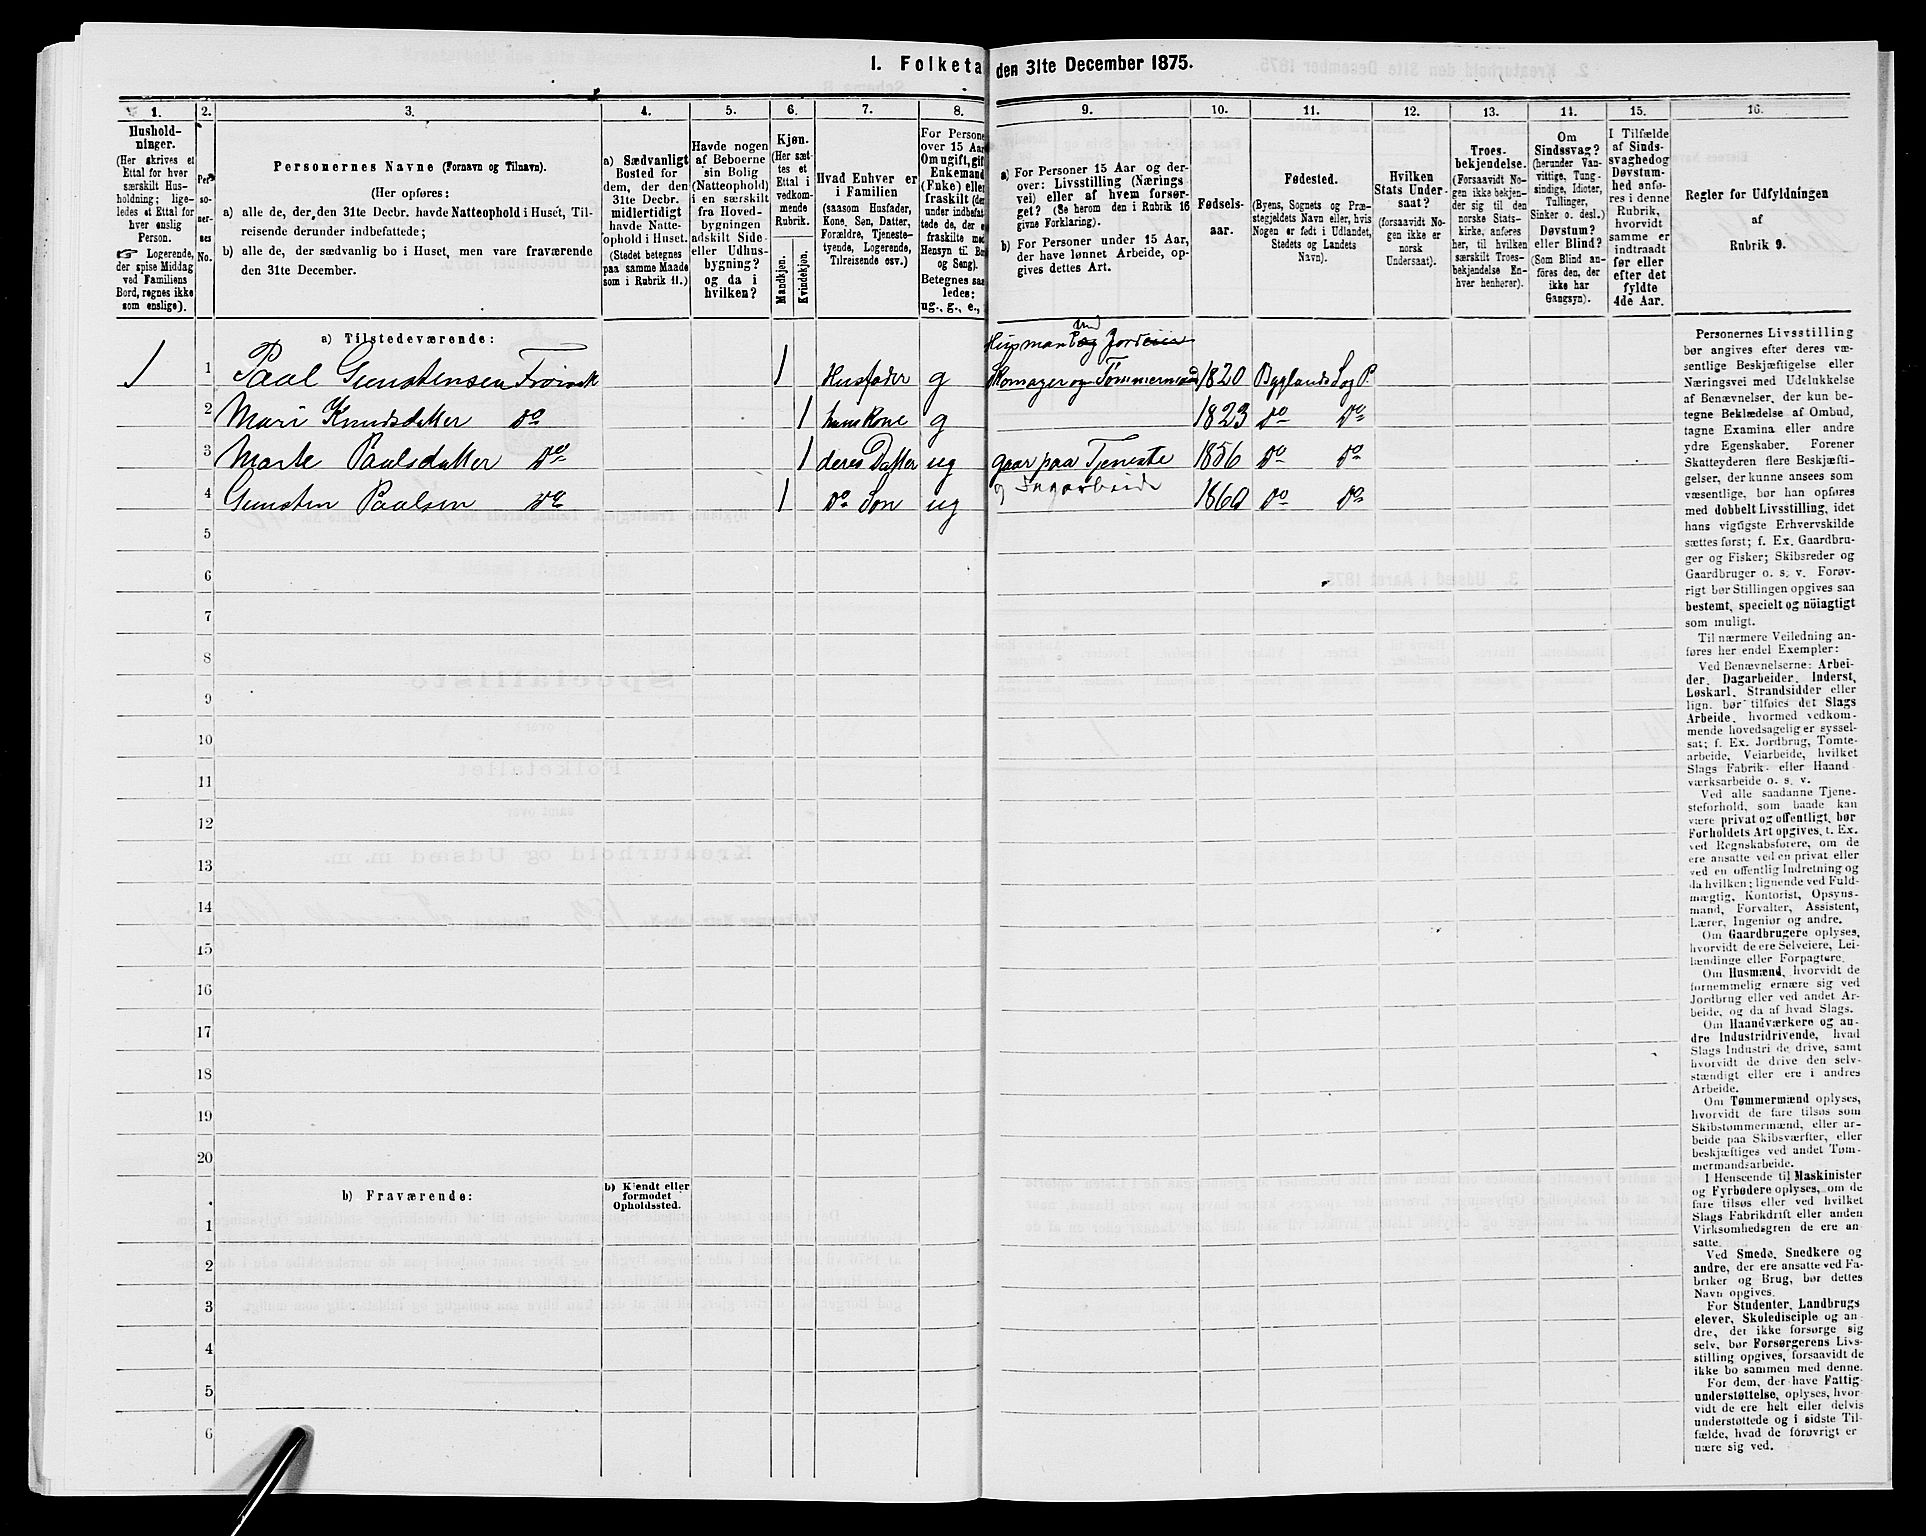 1. Folketa den 31te December 1875.
1. 2. 3. 4. 5. 6. 7. 8. 9. 10. 11. 12. 13. 14. 15. 16.
Hushold-
ninger.
(Her skrives et
Ettal for hver
særskilt Hus-
holdning; lige-
ledes et Ettal for
hver enslig
Person.
Logerende,
der spise Middag
ved Familiens
Bord, regnes ikke
som enslige).
Per-
so-
ner-
nes
No.
Personernes Navne (Fornavn og Tilnavn).
(Her opføres:
a) alle de, der den 31te Decbr. havde Natteophold i Huset, Til-
reisende derunder indbefattede;
b) alle de, der sædvanlig bo i Huset, men vare fraværende
den 31te December.
a) Sædvanligt
Bosted for
dem, der den
31te Decbr.
midlertidigt
havde Natte-
ophold i Huset.
(Stedet betegnes
paa samme Maade
som i Rubrik 11.)
Havde nogen
af Beboerne
sin Bolig
(Natteophold)
i en særskilt
fra Hoved-
bygningen
adskilt Side-
eller Udhus-
bygning?
og da i
hvilken?
Kjøn.
(Her sæt-
tes et
Ettal i
vedkom-
mende
Rubrik.
Mandkjøn.
Kvindekjøn.
Hvad Enhver er
i Familien
(saasom Husfader,
Kone, Søn, Datter,
Forældre, Tjeneste-
tyende, Logerende,
Tilreisende osv.)
For Persone
over 15 Aar
Om ugift, gift
Enkemand
(Enke) eller
fraskilt (der
under indbefat
tede de, der e
fraskilte med
Hensyn til Bo
og Seng).
Betegnes saa
ledes:
ug., g., e.,
a) For Personer 15 Aar og der-
over: Livsstilling (Nærings
vei) eller af hvem forsør-
get? (Se herom den i Rubrik 16
givne Forklaring).
b) For Personer under 15 Aar,
der have lønnet Arbeide, op-
gives dettes Art.
Fødsels-
aar.
Fødested.
(Byens, Sognets og Præ-
stegjeldets Navn eller, hvis
Nogen er født i Udlandet,
Stedets og Landets
Navn).
Hvilken
Stats Under-
saat?
(forsaavidt No-
gen ikke er
norsk
Undersaat).
Troes-
bekjendelse.
(Forsaavidt No-
gen ikke bekjen-
der sig til den
norske Stats-
kirke, anføres
her, til hvilken
særskilt Troes-
bekjendelse En-
hver henhører).
Om
Sindssvag?
(herunder Van-
vittige, Tung-
sindige, Idioter,
Tullinger,
Sinker o. desl.)
Døvstum?
eller Blind?
(Som Blind an-
føres den, der
ikke har
Gangsyn).
I Tilfælde
af Sinds-
svaghed og
Døvstum-
hed anfø-
res i denne
Rubrik,
hvorvidt
samme er
indtraadt
før eller
efter det
fyldte
4de Aar.
Regler for Udfyldningen
af
Rubrik 9.
a) Tilstedeværende:
Husmand med Jord
1 1 Paal Gunstensen Frøisnæs 1 Husfader g Skomager og Tømmermand 1820 Bygland S. og P.
2 Mari Knudsdatter do 1 hans Kone g 1823 do do
3 Marte Paalsdatter do 1 deres Datter ug gaar paa Tjeneste 1856 do do
4 Gunsten Paalsen do 1 do Søn ug og Dagarbeide 1860 do do
5
6
7
8
9
10
11
12
13
14
15
16
17
18
19
20
b) Fraværende:
b) Kjendt eller
formodet
Opholdssted.
1
2
3
4
5
6
Personernes Livsstilling
bør angives efter deres væ-
sentlige Beskjæftigelse eller
Næringsvei med Udelukkelse
af Benævnelser, der kun be-
tegne Beklædelse af Ombud,
tagne Examina eller andre
ydre Egenskaber. Forener
Skatteyderen flere Beskjæfti-
gelser, der kunne ansees som
væsentlige, bør han opføres
med dobbelt Livsstilling, idet
hans vigtigste Erhvervskilde
sættes først; f. Ex. Gaardbru-
ger og Fisker; Skibsreder og
Gaardbruger o. s. v. Forøv-
rigt bør Stillingen opgives saa
bestemt, specielt og nøiagtigt
som muligt.
Til nærmere Veiledning an-
føres her endel Exempler:
Ved Benævnelserne: Arbei-
der, Dagarbeider, Inderst,
Løskarl, Strandsidder eller
lign. bør tilføies det Slags
Arbeide, hvormed vedkom-
mende hovedsagelig er syssel-
sat; f. Ex. Jordbrug, Tomte-
arbeide, Veiarbeide, hvilket
Slags Fabrik- eller Haand-
værksarbeide o. s. v.
Ved alle saadanne Tjene-
steforhold, som baade kan
være privat og offentligt, bør
Forholdets Art opgives, t. Ex.
ved Regnskabsførere, om de
ere ansatte ved en privat eller
ved en offentlig Indretning og
da hvilken; lignende ved Fuld-
mægtig, Kontorist, Opsyns-
mand, Forvalter, Assistent,
Lærer, Ingeniør og andre.
Om Gaardbrugere oplyses,
hvorvidt de ere Selveiere, Lei-
lændinge eller Forpagtere.
Om Husmænd, hvorvidt de
fornemmelig ernære sig ved
Jordbrug eller ved andet Ar-
beide, og da af hvad Slags.
Om Haandværkere og an-
dre Industridrivende, hvad
Slags Industri de drive, samt
hvorvidt de drive den selv-
stændigt eller ere i andres
Arbeide.
Om Tømmermænd oplyses,
hvorvidt de fare tilsøs som
Skibstømmermænd, eller ar-
beide paa Skibsværfter, eller
beskjæftiges ved andet Tøm-
mermandsarbeide.
I Henseende til Maskinister
og Fyrbødere oplyses, om de
fare tilsøs eller ved hvilket
Slags Fabrikdrift eller anden
Virksomhedsgren de ere an-
satte.
Ved Smede, Snedkere og
andre, der ere ansatte ved Fa-
briker og Brug, bør dettes
Navn opgives.
For Studenter, Landbrugs
elever, Skoledisciple og an-
dre, der ikke forsørge sig
selv, bør Forsørgerens Livs-
stilling opgives, forsaavidt de
ikke bo sammen med denne.
For dem, der have Fattig-
understøttelse, oplyses, hvor-
vidt de ere helt eller delvis
understøttede og i sidste Til-
fælde, hvad de forøvrigt er-
nære sig ved.